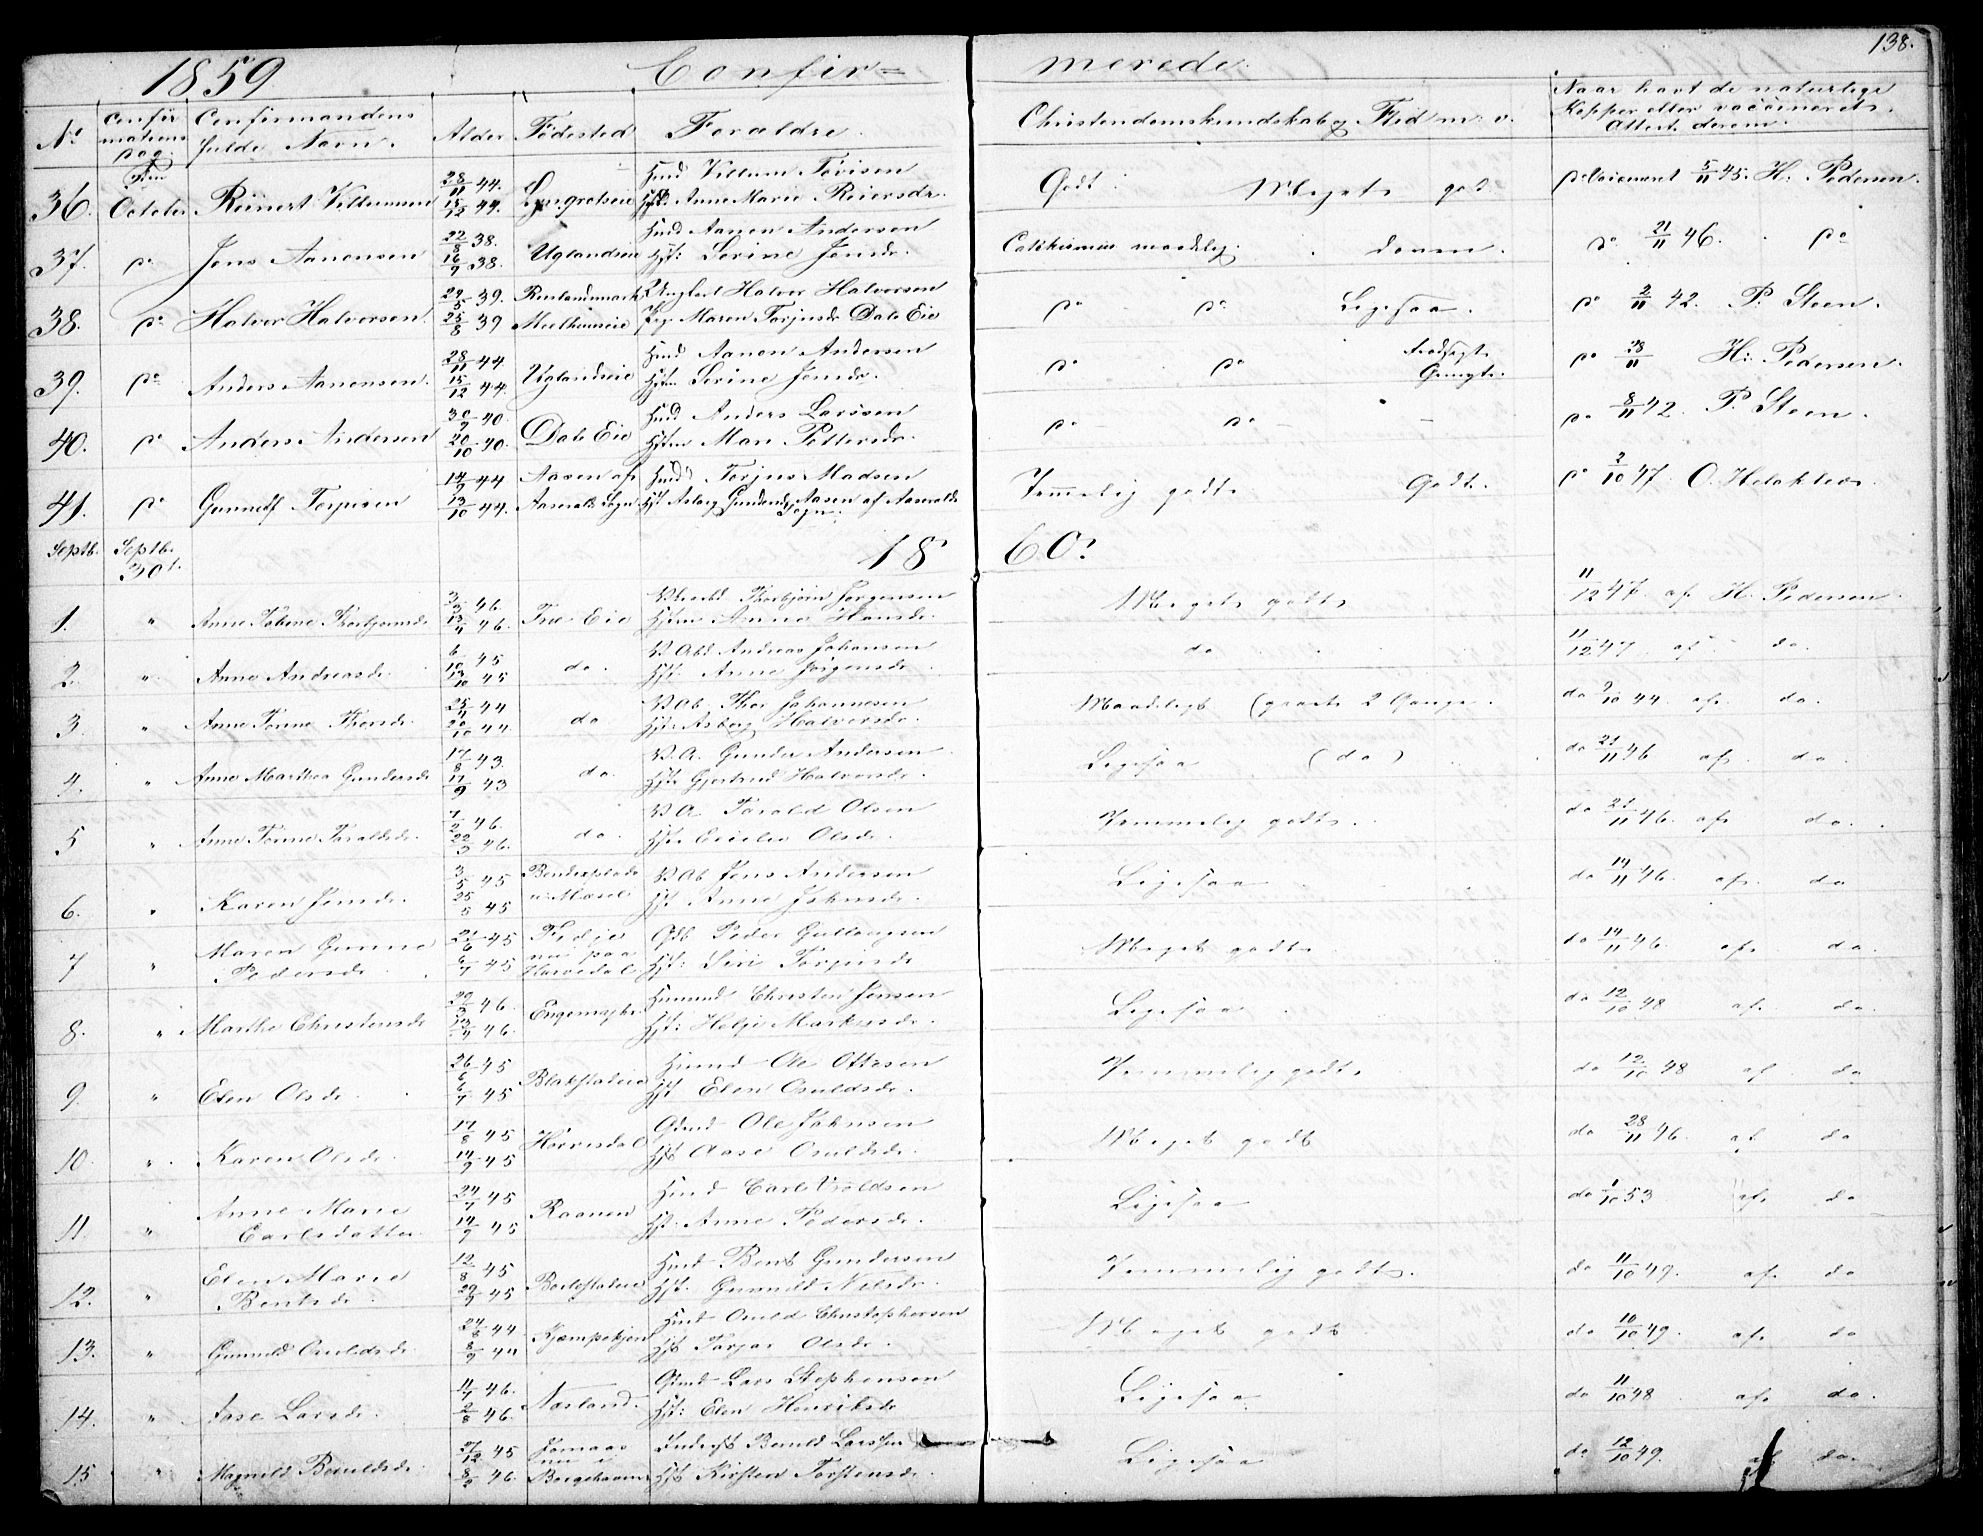 138.
1859 Confir= merede.
No Confirmations Dag Confirmandens fulde Navn. Alder Fødested Forældre. Christendomskundskab og Flid m. v. Naar havt de naturlige Kopper eller vaccineret. Attest derom.
36. October Reinert Villumsen 28/11 44. 15/12 44. Husmd Villum Tovisen Hst: Anne Marie Reiersdr. Godt Meget god. 5/11 45. H. Pedersen.
37. do Jens Aanonsen 22/8 38. 16/9 38. Uglandseie Husmd Aanon Andersen Hst: Serine Jensdr. do 21/11 46. do
38. do Halvor Halvorsen. 29/5 39. 25/8 39 Ungkarl Halvor Halvorsen Pige Maren Torjusdr Dale Eie do do Ligesaa. do 2/11 42. P. Steen.
39. do Anders Aanonsen. 28/11 44. 15/12 44. Uglandseie Husmd Aanon Andersen Hst: Serine Jensdr. do do do 28/11 H: Pedersen.
40. do Anders Andersen 30/9 40. 20/10 40. Dale Eie Husmd Anders Larssen Hst: Mari Pettersdr. do do do 8/11 42. P. Steen.
41. do Gunnulf Torjusen 14/9 44 13/10 44. Aasen af Aaseralds Sogn Husmd Torjus Madsen Hst Asborg Gundersdr Aasen af Aaseralds Sogn. Temmelig godt Godt. do 2/10 47. O.
Septb. Septb. 30t. 18 60.
1. " Anne Tobine Thorbjørnsdr 3/3 46. 13/4 46. Træ Eie Thorbjørn Jørgensen Hst: Anne Hansdr. Meget godt 11/12 47. af H. Pedersen.
2. " Anne Andreasdr. 6/10 45 13/10 45 do. Andreas Johansen Hst. Anne Jørgensdr. do 11/12 47 af do.
3. " Anne Tomine Thorsdr. 25/9 44 20/10 44 do Thor Johannesen Hst: Asborg Halvorsdr. Maadeligt (græsk 2 Gange. do 9/10 44. af do.
4. " Anne Marthea Gundersdr 17/8 43. 17/9 43 do. Gunder Andersen Hst. Gjertrud Halvorsdr. Ligesaa (do) do 21/11 46 af do.
5 " Anne Tomine Taraldsdr. 46. 22/3 46. do. Tarald Olsen Hst. Cecilie Olsdr. Temmelig godt. do 21/11 46. af do.
6. " Karen Jensdr. 3/5 45 25/5 45 Jens Andersen Hst Anne Johnsdr. Ligesaa do 14/11 46. af do
7 " Maren Gunne Pedersdr. 21/6 45 6/7 45 Fidje nu paa Peder Gullougsen Hst: Siri Torjusdr Meget godt. do 14/11 46. af do.
8. " Marthe Christensdr 46. 13/4 46. Husmd Christen Jensen Hst: Helje Markusdr. Ligesaa do 12/10 48 af do.
9. " Elen Olsdr. 26/6 45 6/7 45 Blakstadeie Husmd Ole Ottesen Hst Elen Osuldsdr. Temmelig godt. do 12/10 48 af do
10. " Karen Olsdr. 17/8 45 14/9 45 Ole Johnsen Hst Aase Osuldsdr. Meget godt do 28/11 46. af do
11. " Anne Marie Carlsdatter. 24/7 45 14/9 45 Raanen Husmd Carl Hst. Anne Pedersdr. Ligesaa do 1/10 53 af do
12. " Elen Marie Bentsdr. 12/8 45 45 Husmd Bent Gundersen Hst. Gunnild Nilsdr. Temmelig godt. do 11/10 49. af do
13. " Gunnild Osuldsdr 24/8 44 8/9 44 Husmd Osuld Christophersen Hst Torjer Olsdr. Meget godt. do 10/10 49. af do
14. " Aase Larsdr. 11/7 46. 2/8 46. Næsland. Lars Stephensen Hst: Elen Henriksdr Ligesaa do 11/10 48 af do.
15. " Magnild Berulddr. 27/12 45 8/2 46. Beruld Larssen Hst Kirsten Torstensdr. Ligesaa do 12/10 49. af do.